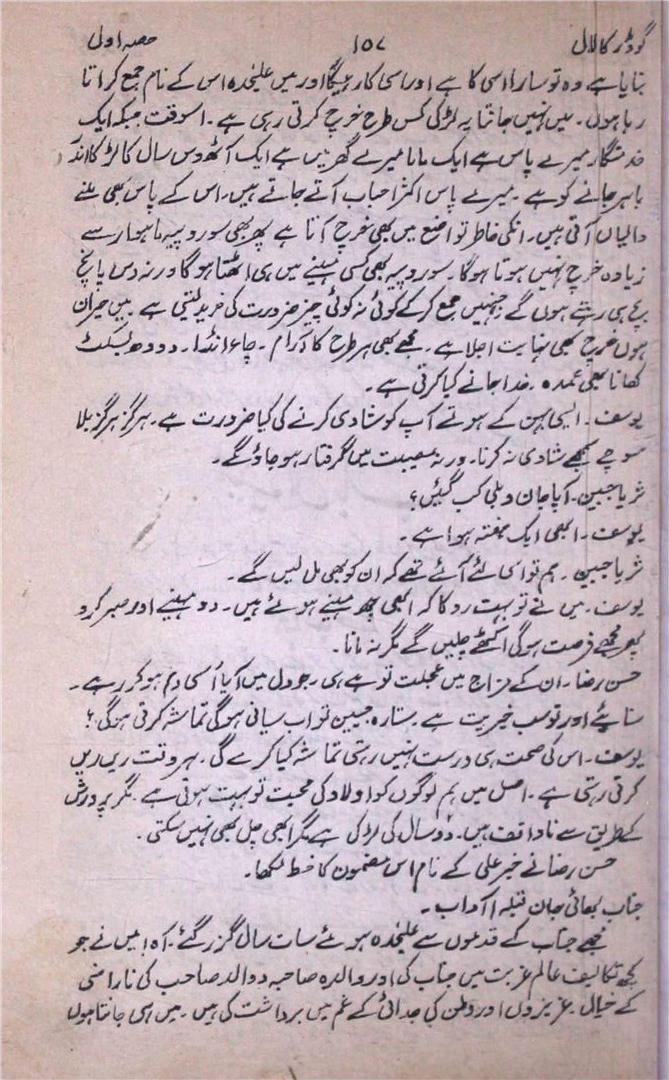 گودڑ کا لال ۱۵۷ حصہ اول
بنایا ہے وہ تو سارا اسی کا ہے اور اسی کا رہیگا اور میں علیٰحدہ اس کے نام جمع کراتا
رہا ہوں۔ میں نہیں جانتا یہ لڑکی کس طرح خرچ کرتی رہی ہے۔ اسوقت جبکہ ایک
خدمتگار میرے پاس ہے ایک ماما میرے گھر میں ہے ایک آٹھ دس سال کا لڑکا اندر
باہر جانے کو ہے۔ میرے پاس اکثر احباب آتے جاتے ہیں۔ اس کے پاس بھی ملنے
والیاں آتی ہیں۔ انکی خاطر تواضع میں بھی خرچ آتا ہے پھر بھی سو روپیہ ماہوار سے
زیادہ خرچ نہیں ہوتا ہوگا۔ سو روپیہ بھی کسی مہینے میں ہی اٹھتا ہوگا ورنہ دس پانچ
بچے ہی رہتے ہوں گے جنہیں جمع کر کے کوئی نہ کوئی چیز ضرورت کی خرید لیتی ہے۔ میں حیران
ہوں خرچ بھی نہایت اجلا ہے۔ مجھے بھی ہر طرح کا آرام۔ چاء انڈا۔ دودھ بسکٹ
کھانا بھی عمدہ۔ خدا جانے کیا کرتی ہے۔
یوسف۔ ایسی بہن کے ہوتے آپ کو شادی کرنے کی کیا ضرورت ہے۔ ہرگز ہرگز بلا
سوچے سمجھے شادی نہ کرنا۔ ورنہ مصیبت میں گرفتار ہو جاؤ گے۔
ثریا جبین۔ آپا جان دہلی کب گئیں؟
یوسف۔ ابھی ایک ہفتہ ہوا ہے۔
ثریا جبین۔ ہم تو اسی لئے آئے تھے کہ ان کو بھی مل لیں گے۔
یوسف۔ میں نے تو بہت روکا کہ ابھی چھ مہینے ہوئے ہیں۔ دو مہینے اور صبر کرو
پھر مجھے فرصت ہوگی اکٹھے چلیں گے مگر نہ مانا۔
حسن رضا۔ ان کے مزاج میں عجلت تو ہے ہی۔ جو دل میں آیا اُسی دم ہو کر رہے۔
سنائیے اور تو سب خیریت ہے۔ ستارہ جبین تو اب سیانی ہوگی تماشہ کرتی ہوگی؟
یوسف۔ اس کی صحت ہی درست نہیں رہتی تماشہ کیا کرے گی۔ ہر وقت ریں ریں
کرتی رہتی ہے۔ اصل میں ہم لوگوں کو اولاد کی محبت تو بہت ہوتی ہے۔ مگر پرورش
کے طریق سے ناواقف ہیں۔ دو سال کی لڑکی ہے مگر ابھی چل بھی نہیں سکتی۔
حسن رضا نے خبر علی کے نام اس مضمون کا خط لکھا۔
جناب بھائی جان قبلہ! آداب۔
مجھے جناب کے قدموں سے علیٰحدہ ہوئے سات سال گزر گئے۔ آہ! میں نے جو
کچھ تکالیف عالم غربت میں جناب کی اور والدہ صاحبہ و والد صاحب کی ناراضی
کے خیال۔ عزیزوں اور وطن کی جدائی کے غم میں برداشت کی ہیں۔ میں ہی جانتا ہوں